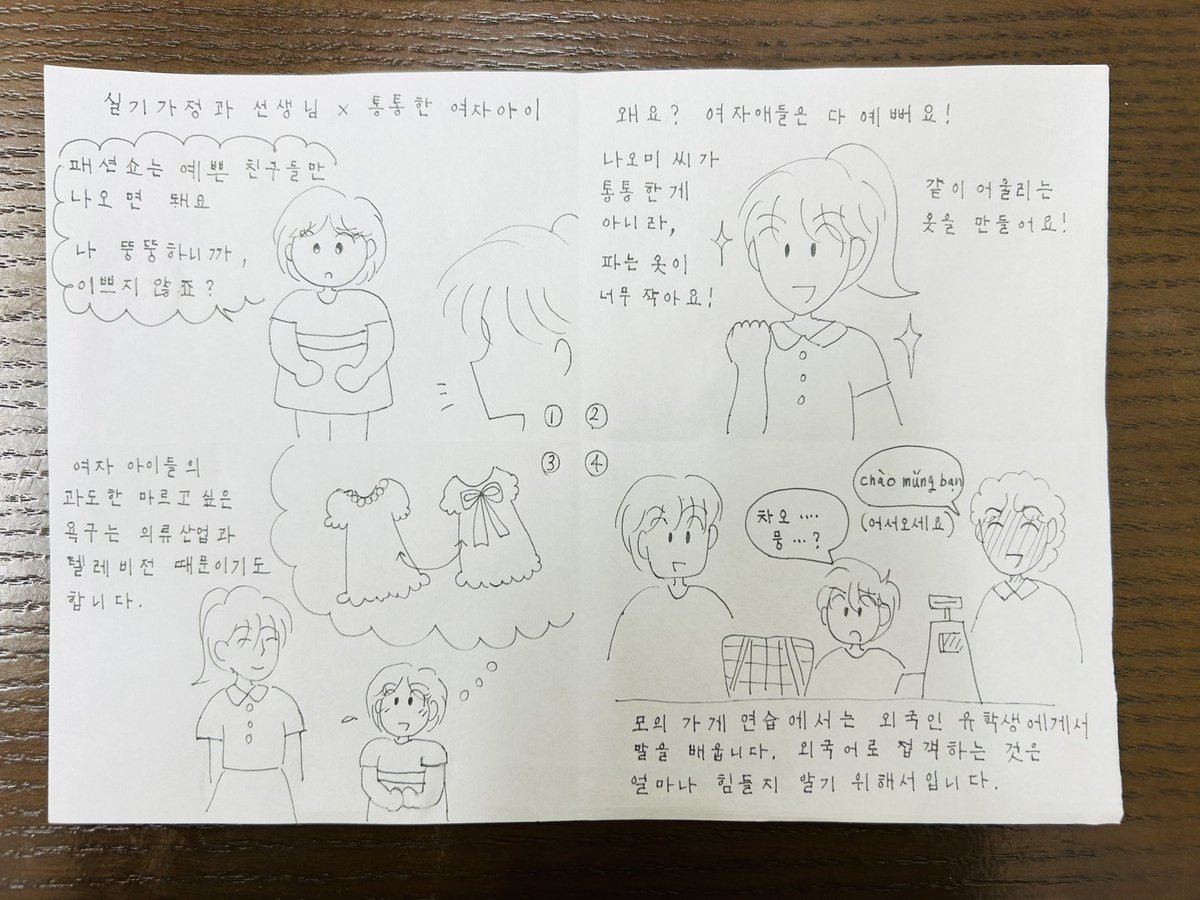 실기가정과 선생님 × 통통한 여자아이
패션쇼는 예쁜 친구들만
나오면 돼요
나 뚱뚱하니까,
이쁘지 않죠?
①
왜요? 여자애들은 다 예뻐요!
나오미 씨가
통통한게
아니라,
파는 옷이
너무 작아요!
같이 어울리는
옷을 만들어요!
②
③
여자 아이들의
과도한 마르고 싶은
욕구는 의류산업과
텔레비전 때문이기도
합니다.
④
차오 ....
믕 ...?
chào mừng bạn
(어서오세요)
모의 가게 연습에서는 외국인 유학생에게서
말을 배웁니다. 외국어로 접객하는 것은
얼마나 힘들지 알기 위해서입니다.